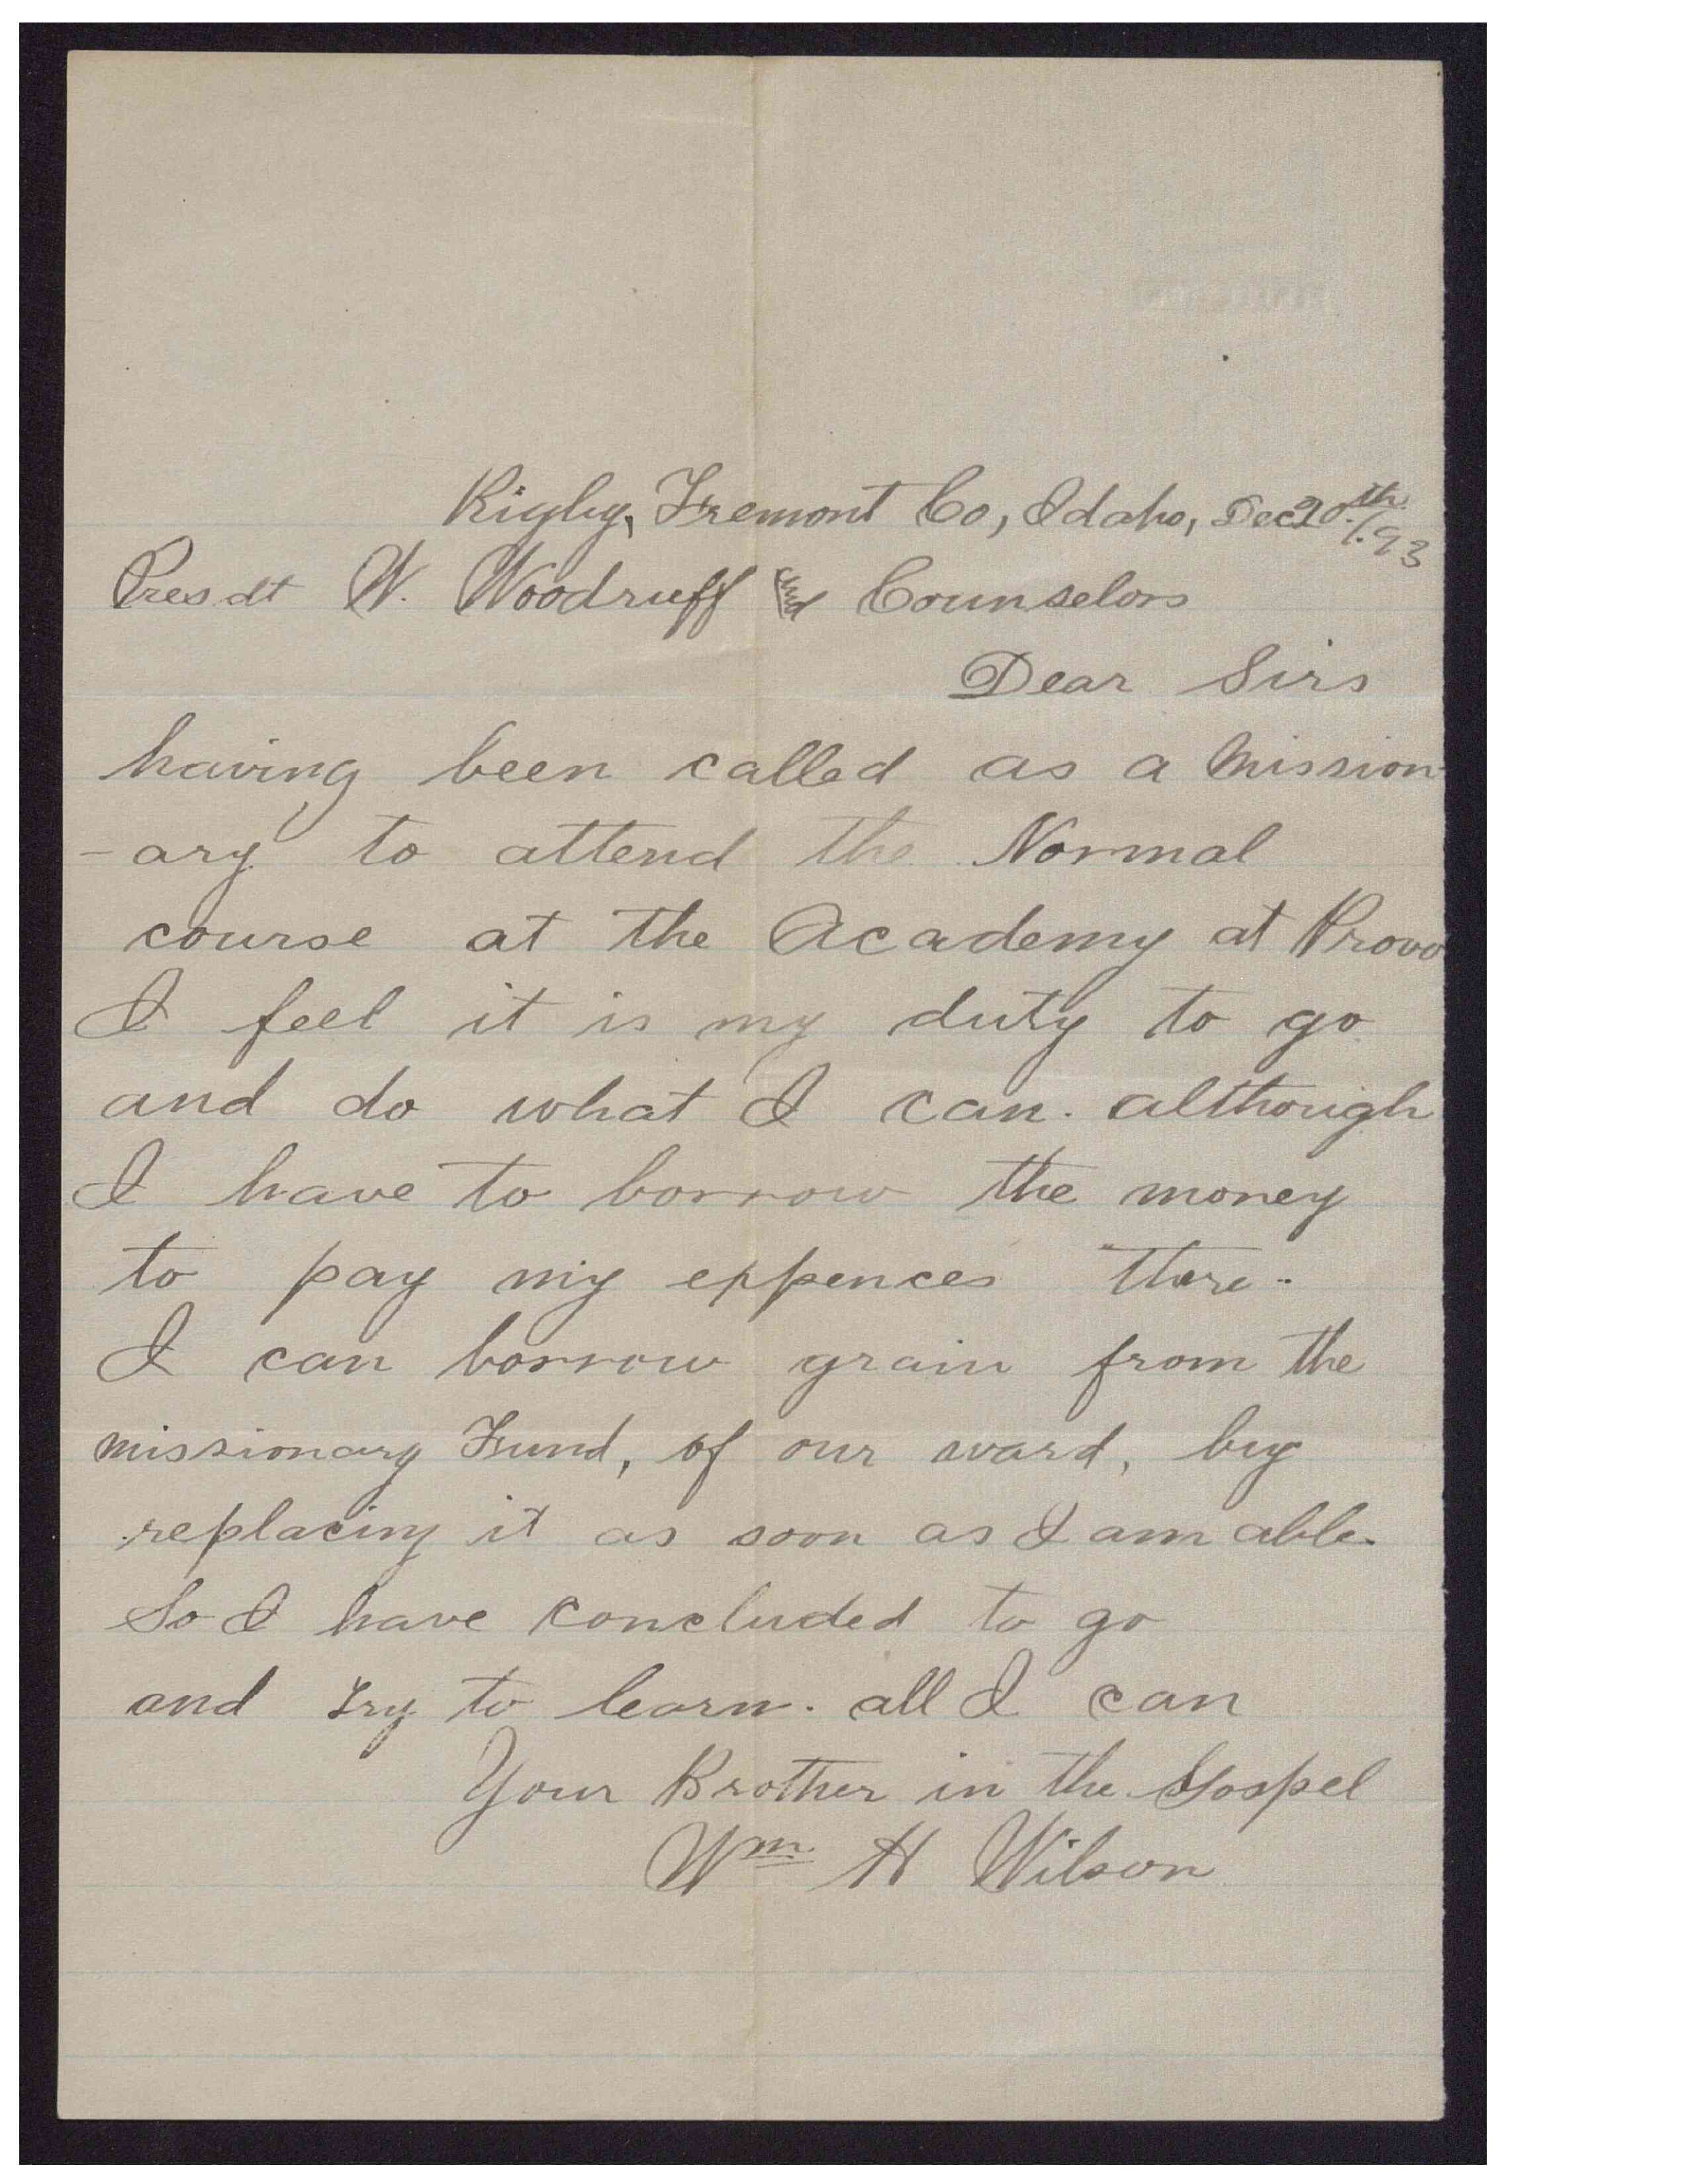 Rigby, Fremont Co, Idaho, Dec 20th /93
Presdt W. Woodruff and Counselors
Dear Sirs
having been called as a Mission
-ary to attend the Normal
course at the Academy at Provo
I feel it is my duty to go
and do what I can. although
I have to borrow the money
to pay my expences there.
I can borrow grain from the
missionary Fund, of our ward, by
replacing it as soon as I am able.
So I have concluded to go
and try to learn. all I can
Your Brother in the Gospel
Wm H Wilson